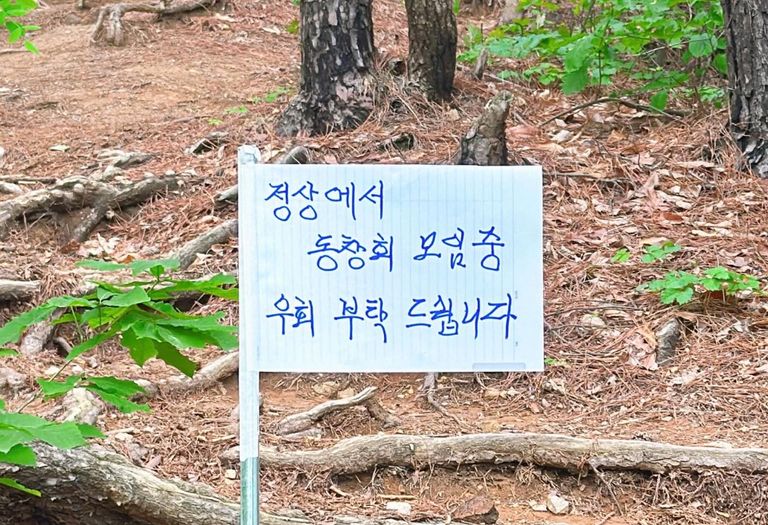 정상에서
동창회 모임중
우회 부탁 드립니다